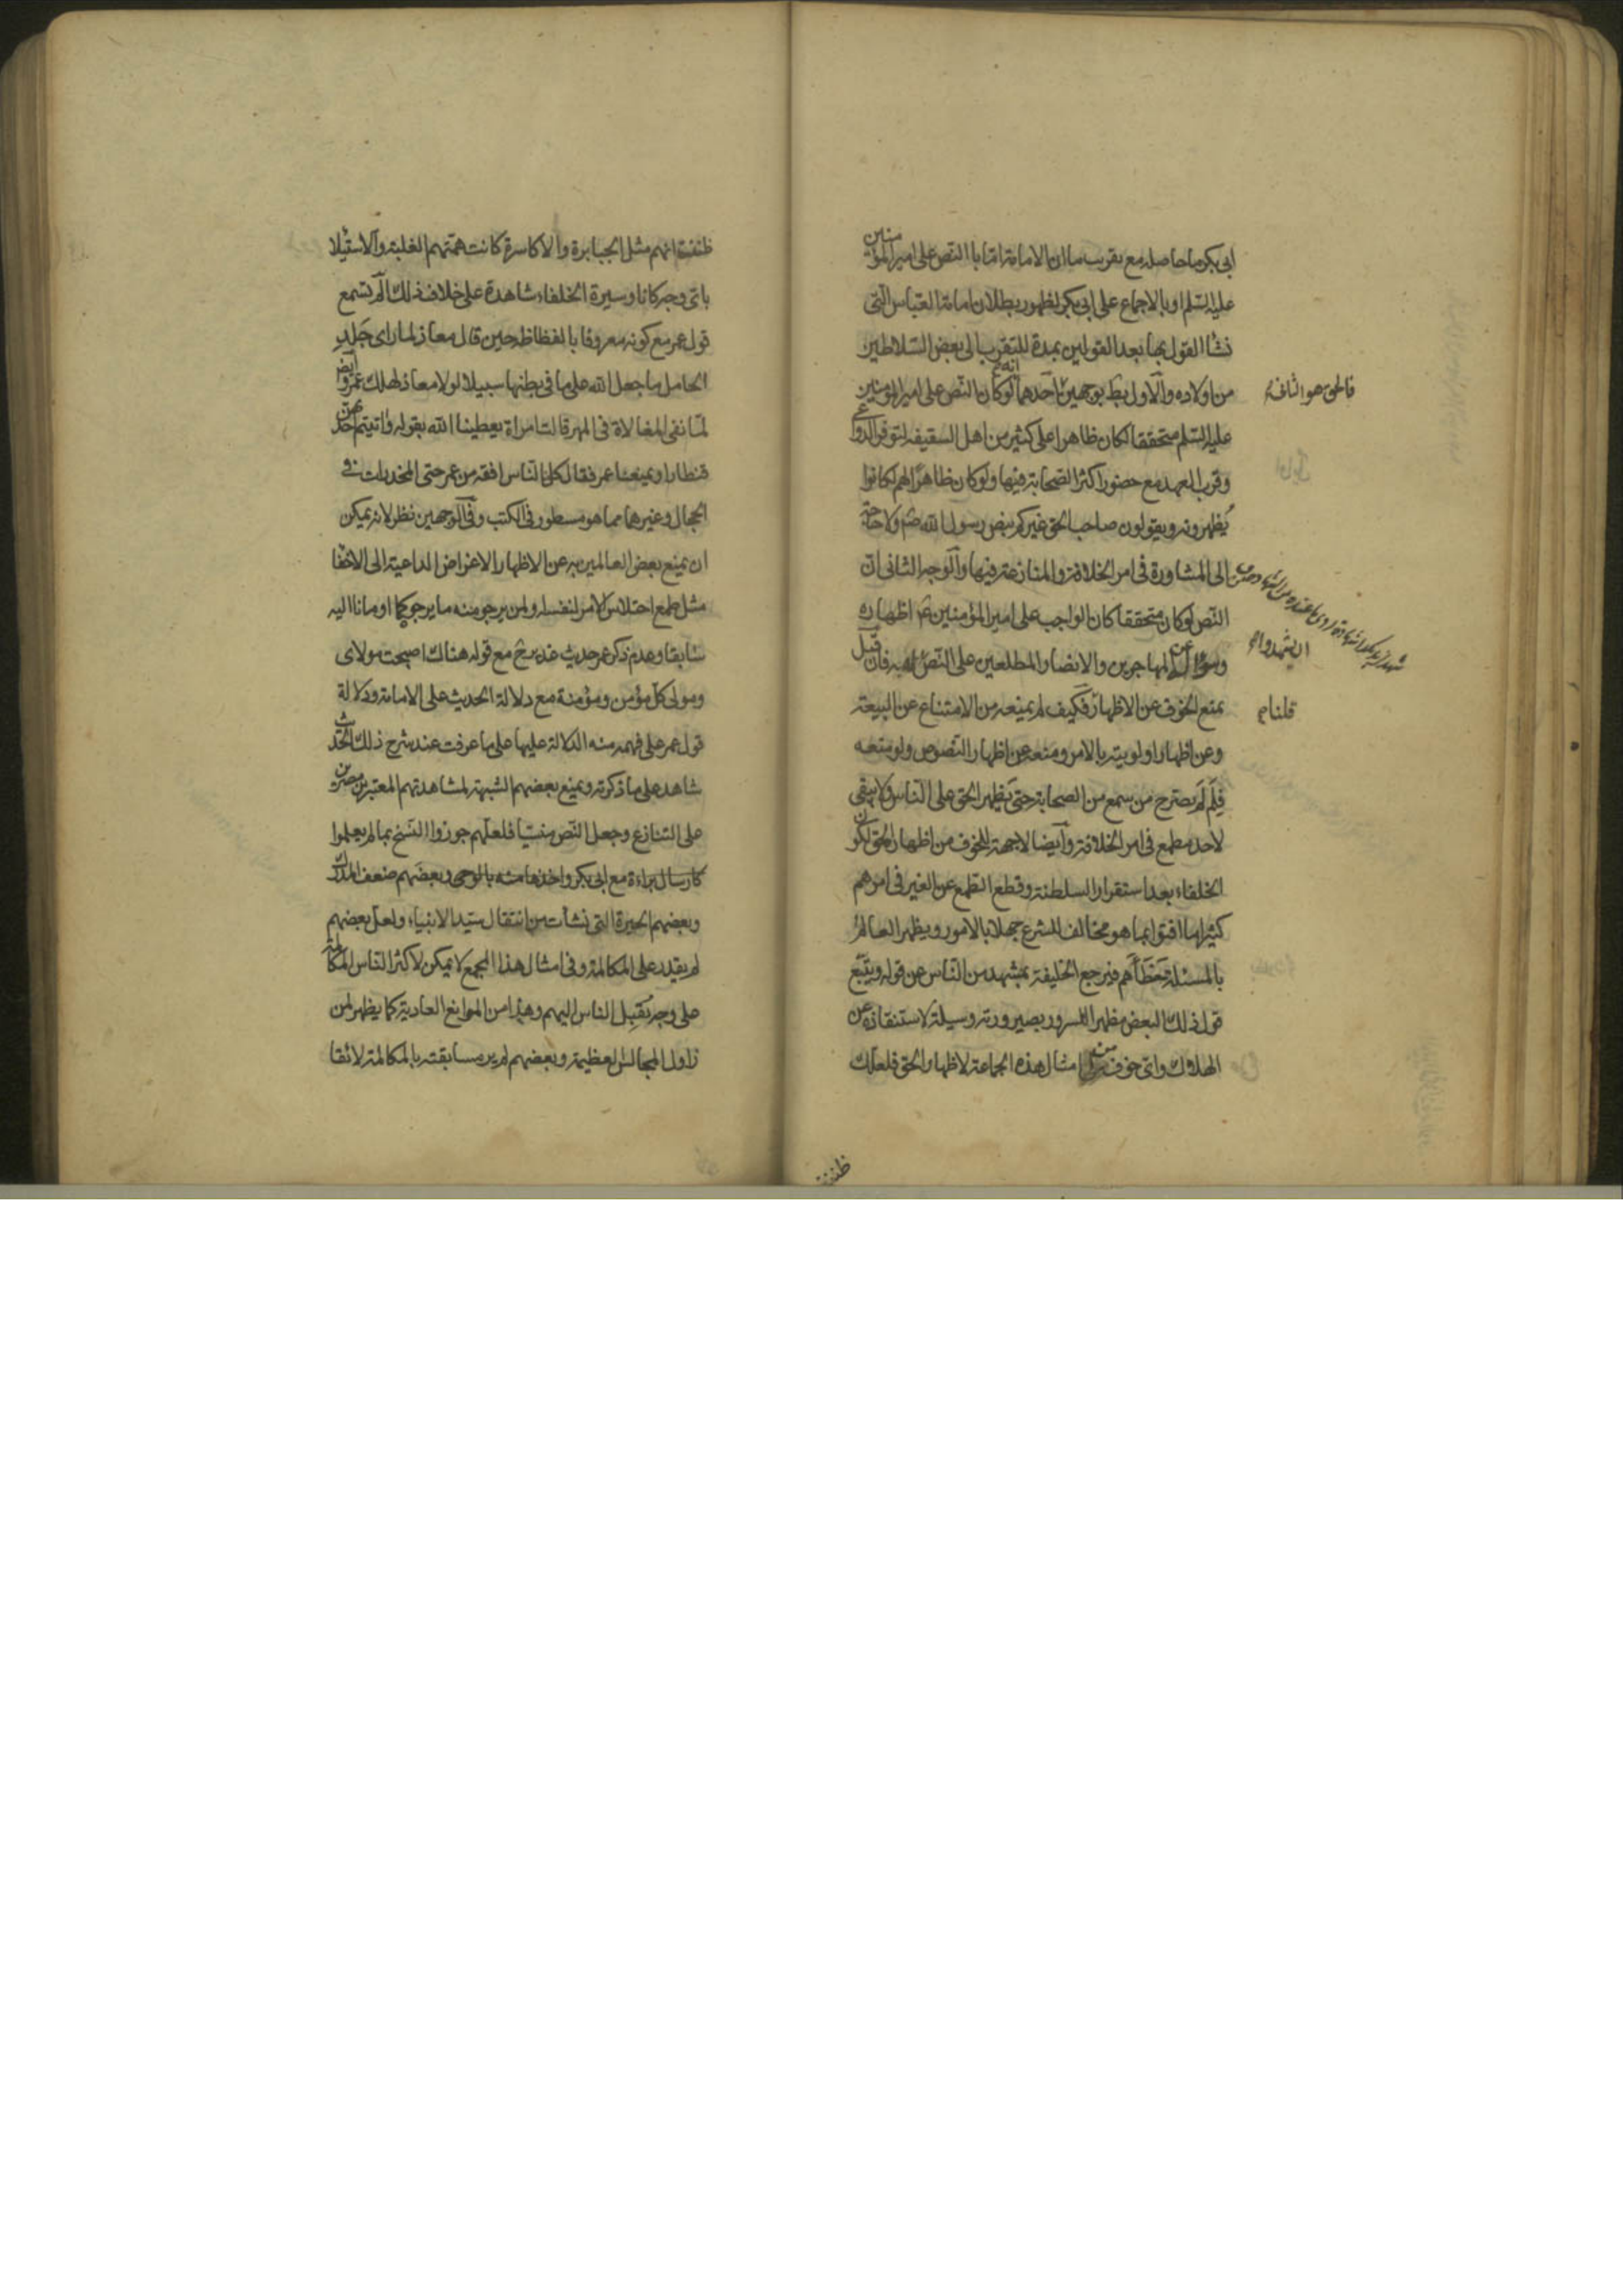 ابی بکر ما حاصله مع تقریب ما ان الامامة اما بالنص علی امیر المؤمنین
علیه السلم او بالاجماع علی ابی بکر لظهور بطلان امامة العباس التی
نشأ القول بها بعد القولین بمدة للتقرب الی بعض السلاطین
من اولاده والاول بط بوجهین احدهما انه لو کان النص علی امیر المومنین
فالحق هو الثانی
علیه السلم متحققا لکان ظاهرا علی کثیر من اهل السقیفه لتوفر الدواعی
وقرب العهد مع حضور اکثر الصحابة فیها ولو کان ظاهرا لهم لکانوا
یظهرونه ویقولون صاحب الحق غیرکم بنص رسول الله صم ولا حاجة
الی المشاورة فی امر الخلافة والمنازعة فیها والوجه الثانی ان
النص لو کان متحققا کان الواجب علی امیر المؤمنین عم اظهاره
وسؤال المهاجرین والانصار المطلعین علی النص به فان قیل
ان یشهدوا
یمنع الخوف عن الاظهار فکیف لم یمنعه من الامتناع عن البیعة
قلنا
وعن اظهار اولویته بالامر ومنعه عن اظهار النصوص ولو منعه
فلم لم یصرح من سمع من الصحابة حتی یظهر الحق علی الناس ولا یبقی
لاحد مطمع فی امر الخلافة وایضا لا جهة للخوف من اظهار الحق لکون
الخلفاء بعد استقرار السلطنة وقطع الطمع عن الغیر فی امرهم
کثیرا ما افتوا بما هو مخالف للشرع جهلا بالامور ویظهر العالم
بالمسئلة خطأهم فیرجع الخلیفة بمشهد من الناس عن قوله ویتبع
قول ذلک البعض مظهرا للسرور بصیرورته وسیلة لاستنقاذه عن
الهلاک وای خوف من امثال هذه الجماعة لاظهار الحق فلعلک
ظننت
ظننت انهم مثل الجبابرة والاکاسرة کانت همتهم الغلبة والاستیلا
بای وجه کانا وسیرة الخلفاء شاهدة علی خلاف ذلک الم تسمع
قول عمر مع کونه معروفا بالفظاظه حین قال معاذ لما رای جلد
الحامل ما جعل الله علی ما فی بطنها سبیلا لولا معاذ لهلک عمر وایض
لما نفی المغالاة فی المهر قالت امراة یعطینا الله بقوله واتیتم احدیهن
قنطارا ویمنعنا عمر فقال کل الناس افقه من عمر حتی المخدرات فی
الحجال وغیرها مما هو مسطور فی الکتب وفی الوجهین نظر لانه یمکن
ان یمنع بعض العالمین به عن الاظهار الاغراض الداعیة الی الاخفا
مثل طمع اختلاس الامر لنفسه ولمن یرجو منه ما یرجو کما اومانا الیه
سابقا وعدم ذکر عمر حدیث غدیر خم مع قوله هناک اصبحت مولای
ومولی کل مؤمن ومؤمنة مع دلالة الحدیث علی الامامة ودلالة
قول عمر علی فهمه منه الدلالة علیها علی ما عرفت عند شرح ذلک الحدیث
شاهد علی ما ذکرته ویمنع بعضهم الشبهة لمشاهدتهم المعتبرین
علی التنازع وجعل النص منسیا فلعلهم جوزوا النسخ بما لم یعلموا
کارسال براءة مع ابی بکر واخذها منه بالوحی وبعضهم ضعف المدرک
وبعضهم الحیرة التی نشأت من انتقال سید الانبیاء ولعل بعضهم
لم یقدر علی المکالمة وفی امثال هذا المجمع لا یمکن لاکثر الناس المکالمة
علی وجه یقبل الناس الیهم وهذا من الموانع العادیة کما یظهر لمن
زاول المجالس العظیمة وبعضهم لم یر مسابقته بالمکالمة لائقا